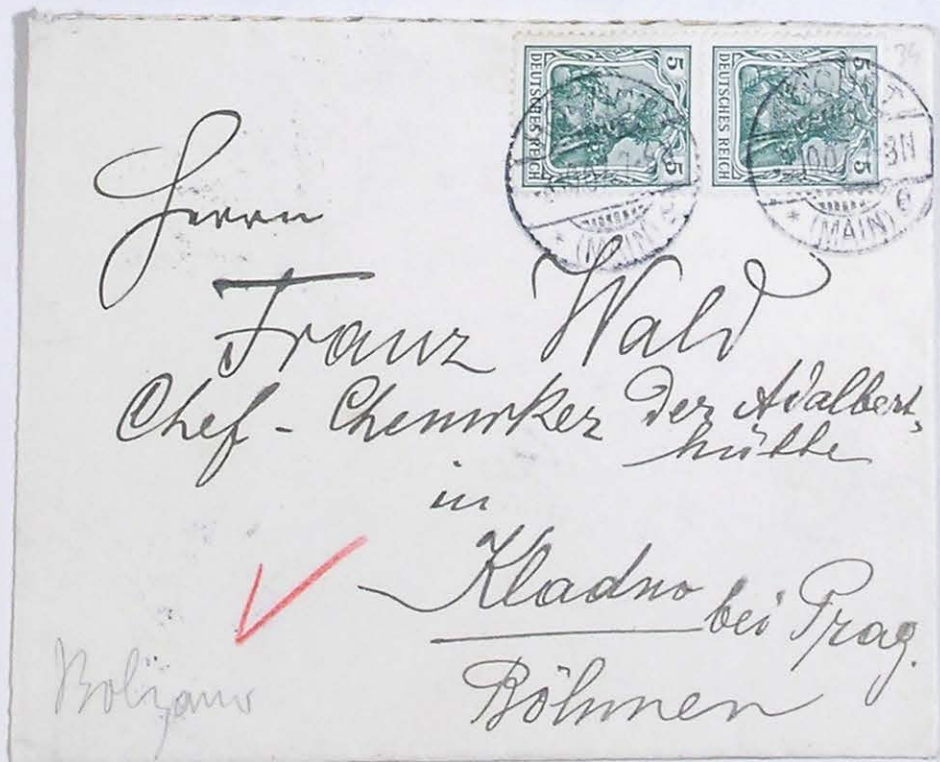 34
5 5
DEUTSCHES REICH
5 5
DEUTSCHES REICH
(MAIN)
(MAIN) e
Herrn
Franz Wald
Chef-Chemiker der Adalbert-
hütte
in
Kladno bei Prag.
Böhmen